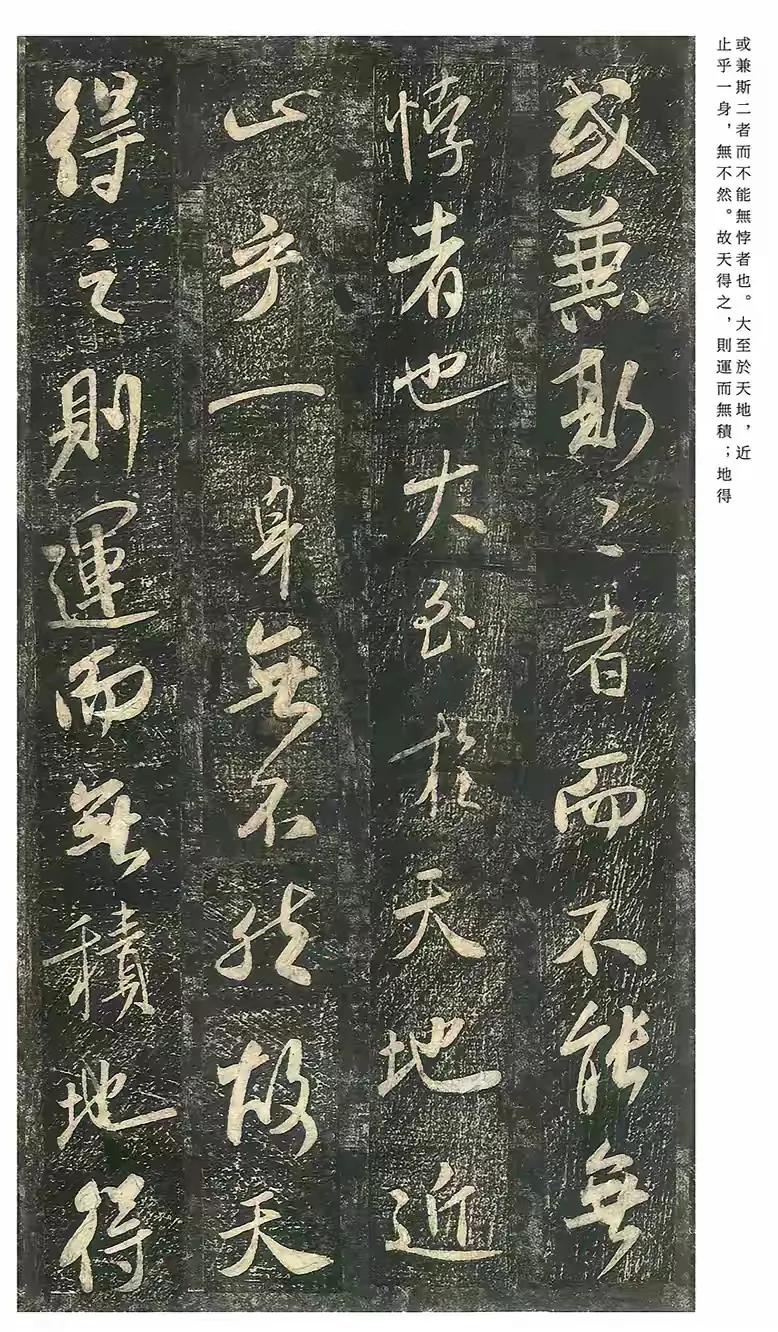 或兼斯二者而不能無悖者也。大至於天地，近
止乎一身，無不然。故天得之，則運而無積；地得
或兼斯二者而不能無
悖者也大至於天地近
止乎一身無不然故天
得之則運而無積地得